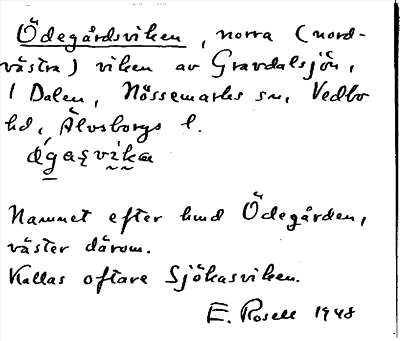 Ödegårdsviken, norra (nord-
västra) viken av Gravdalsjön,
i Dalen, Nössemarks sn, Vedbo
hd, Älvsborgs l.
Namnet efter hmd Ödegården,
väster därom.
Kallas oftare Sjökasviken.
E. Rosell 1948